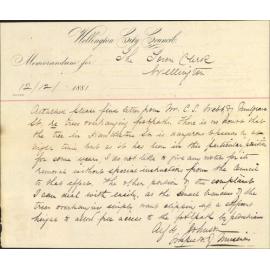 Wellington City Council
Memorandum for The Town Clerk
Wellington
12/12/1881
Attached please find letter from Mr. C. S. Webb
St. re tree overhanging footpath. There is no doubt that
the tree in is dangerous
time but as it has been in this particular position
for some years, I do not like to give any notice for its
removal without special instruction from the Council
to that effect. The other portion of the complaint
I can deal with easily, as the small branches of the
tree overhanging simply want clipping up a
to allow free access to the footpath by pedestrians
Alf. W. Johns
Inspector of Nuisances